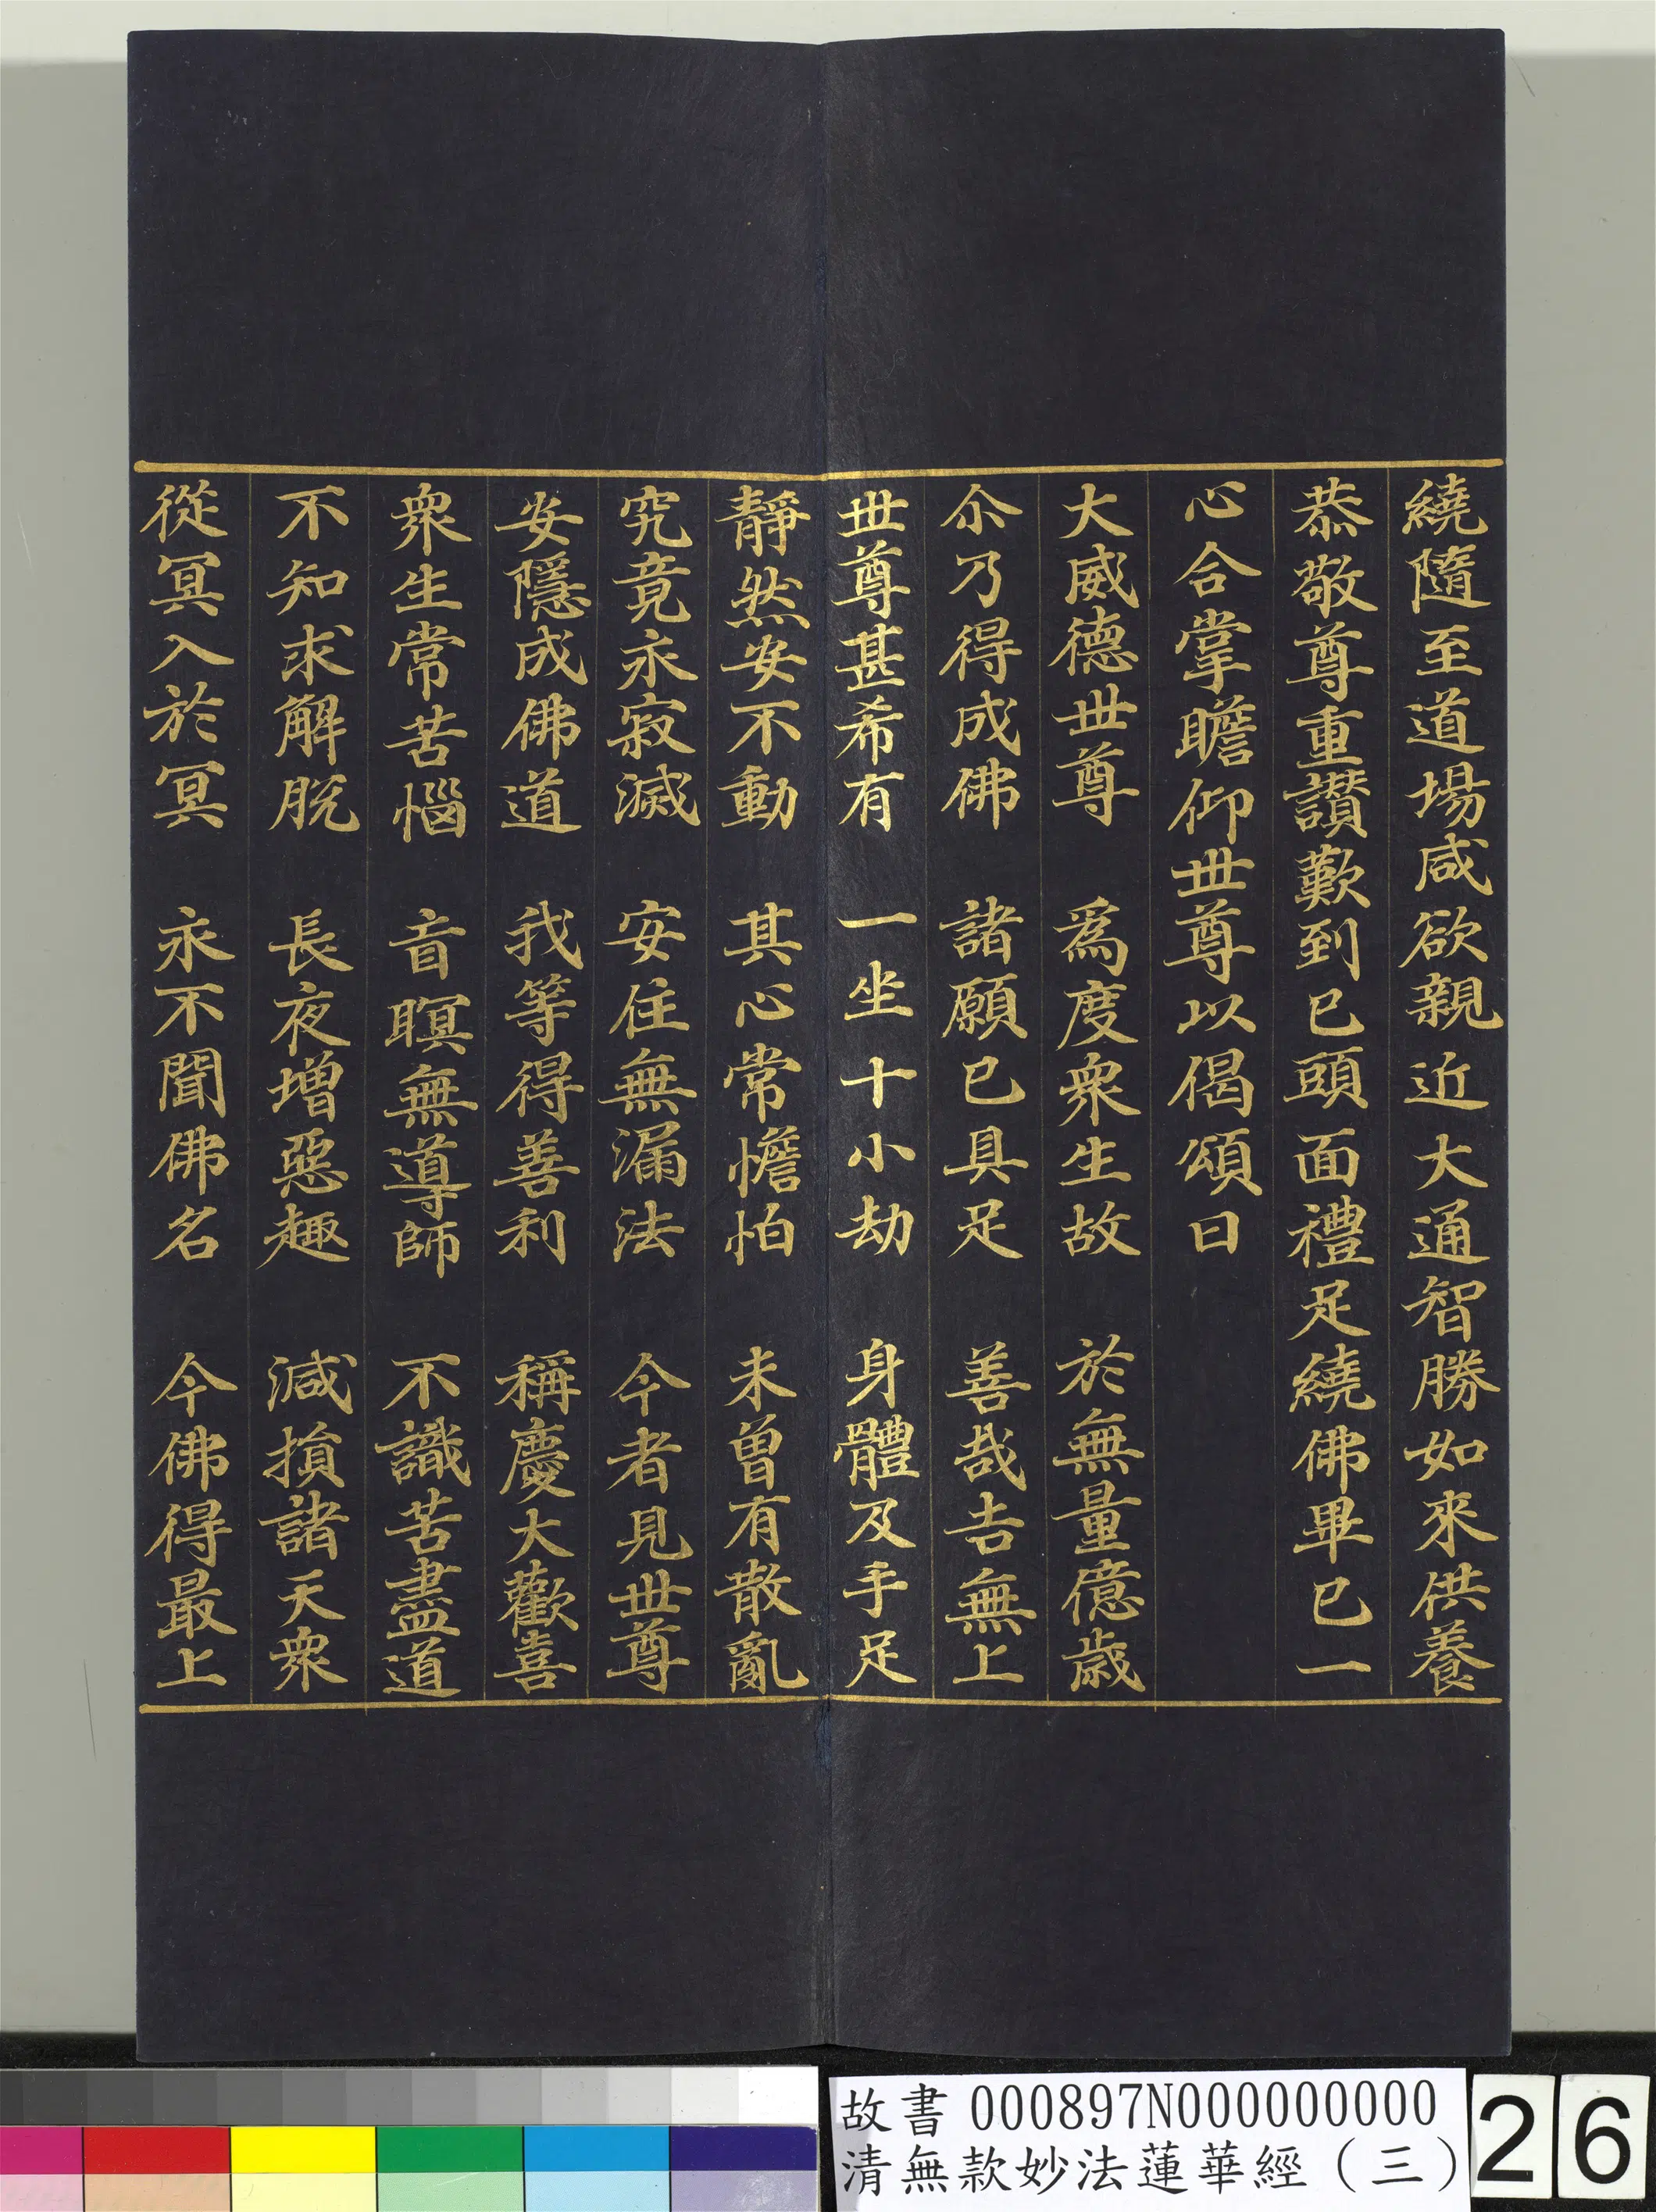 繞隨至道場咸欲親近大通智勝如來供養
恭敬尊重讚歎到已頭面禮足繞佛畢已一
心合掌瞻仰世尊以偈頌曰
大威德世尊　為度衆生故　於無量億歲
尒乃得成佛　諸願已具足　善哉吉無上
世尊甚希有　一坐十小劫　身體及手足
靜然安不動　其心常憺怕　未曽有散亂
究竟永寂滅　安住無漏法　今者見世尊
安隱成佛道　我等得善利　稱慶大歡喜
衆生常苦惱　盲瞑無導師　不識苦盡道
不知求解脫　長夜增惡趣　減損諸天衆
從冥入於冥　永不聞佛名　今佛得最上
故書 000897N000000000
清無款妙法蓮華經（三）
26